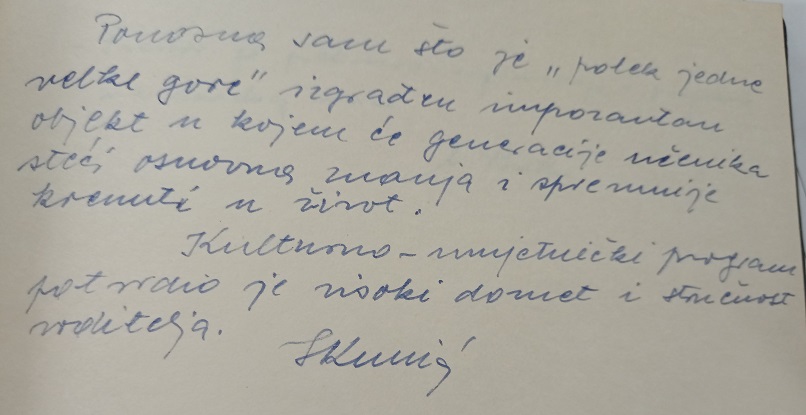 Ponosna sam što je „polek jedne
velke gore" izgrađen impozantan
objekt u kojem će generacije učenika
steći osnovna znanja i spremnije
krenuti u život.
Kulturno-umjetnički program
potvrdio je visoki domet i stručnost
voditelja.